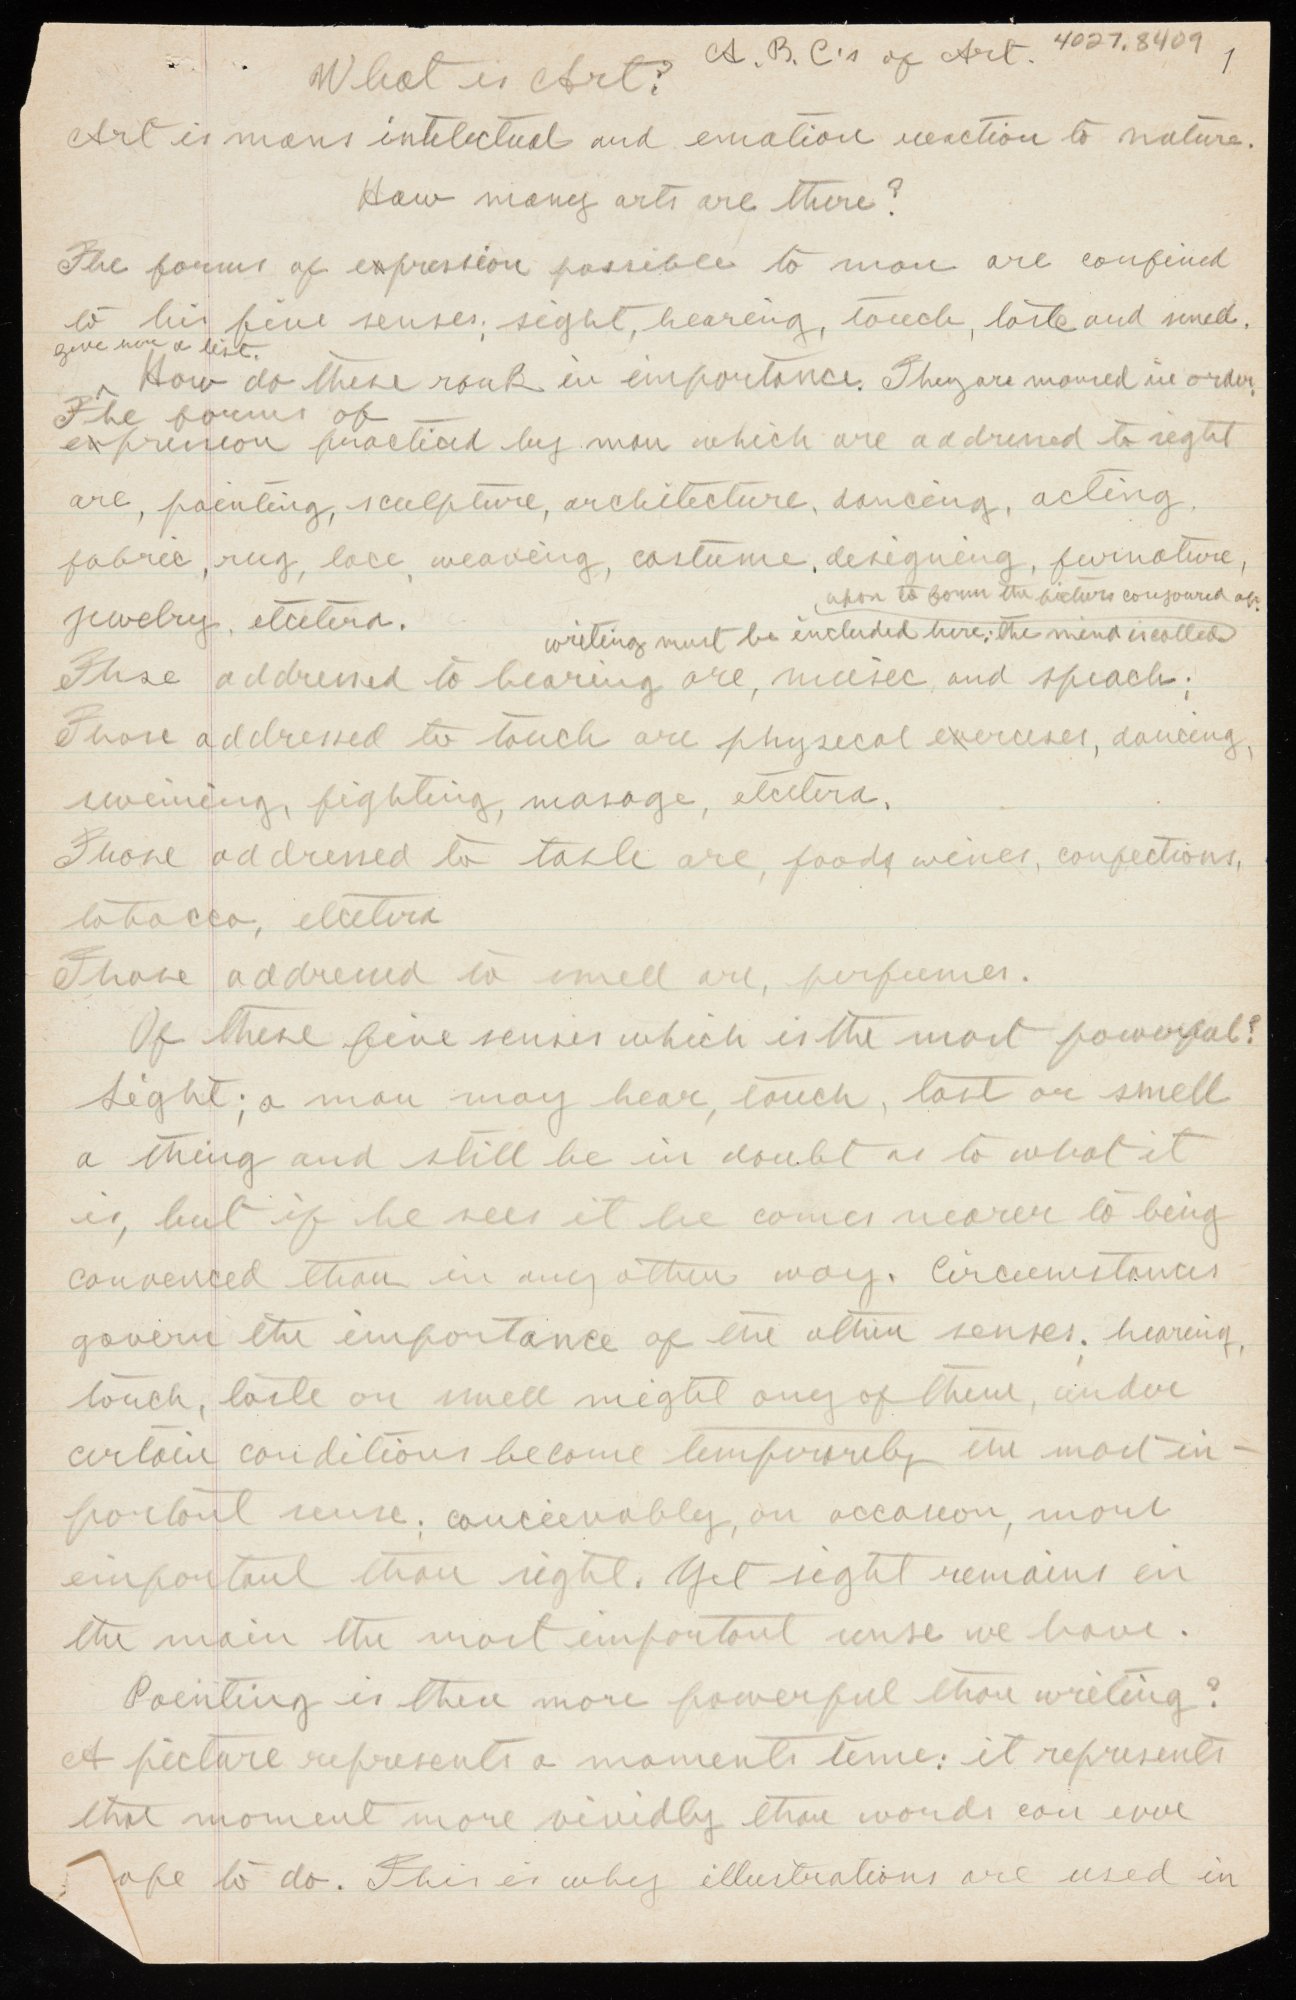 A. B. C's of Art. 4027.8409 1
What is Art?
Art is mans intelectual and emation reaction to nature.
How many arts are there?
The forms of expression possible to man are confined
to his five senses; sight, hearing, touch, taste and smell.
give him a list.
How do these rank in importance. They are named in order.
The forms of
expression practiced by man which are addressed to sight
are, painting, sculpture, architecture, dancing, acting,
fabric, rug, lace, weaving, costume, designing, furnature,
upon to form the picturs conjoured up.
jewelry, etcetera.
writing must be included here; the mind is called
Those addressed to hearing are, music, and speach;
Those addressed to touch are physecal exercises, dancing,
swiming, fighting, masage, etcetera.
Those addressed to taste are, foods, wines, confections,
tobacco, etcetera
Those addressed to smell are, perfumes.
Of these five senses which is the most powerful?
Sight; a man may hear, touch, tast or smell
a thing and still be in doubt as to what it
is, but if he sees it he comes nearer to being
convenced than in any other way. Circumstances
govern the importance of the other senses; hearing,
touch, taste or smell might any of them, under
certain conditions become temporarely the most im-
portant sense; concievably, on occasion, more
important than sight. Yet sight remains in
the main the most important sense we have.
Painting is then more powerful than writing?
A picture represents a moments time: it represents
that moment more vividly than words can ever
ope to do. This is why illustrations are used in